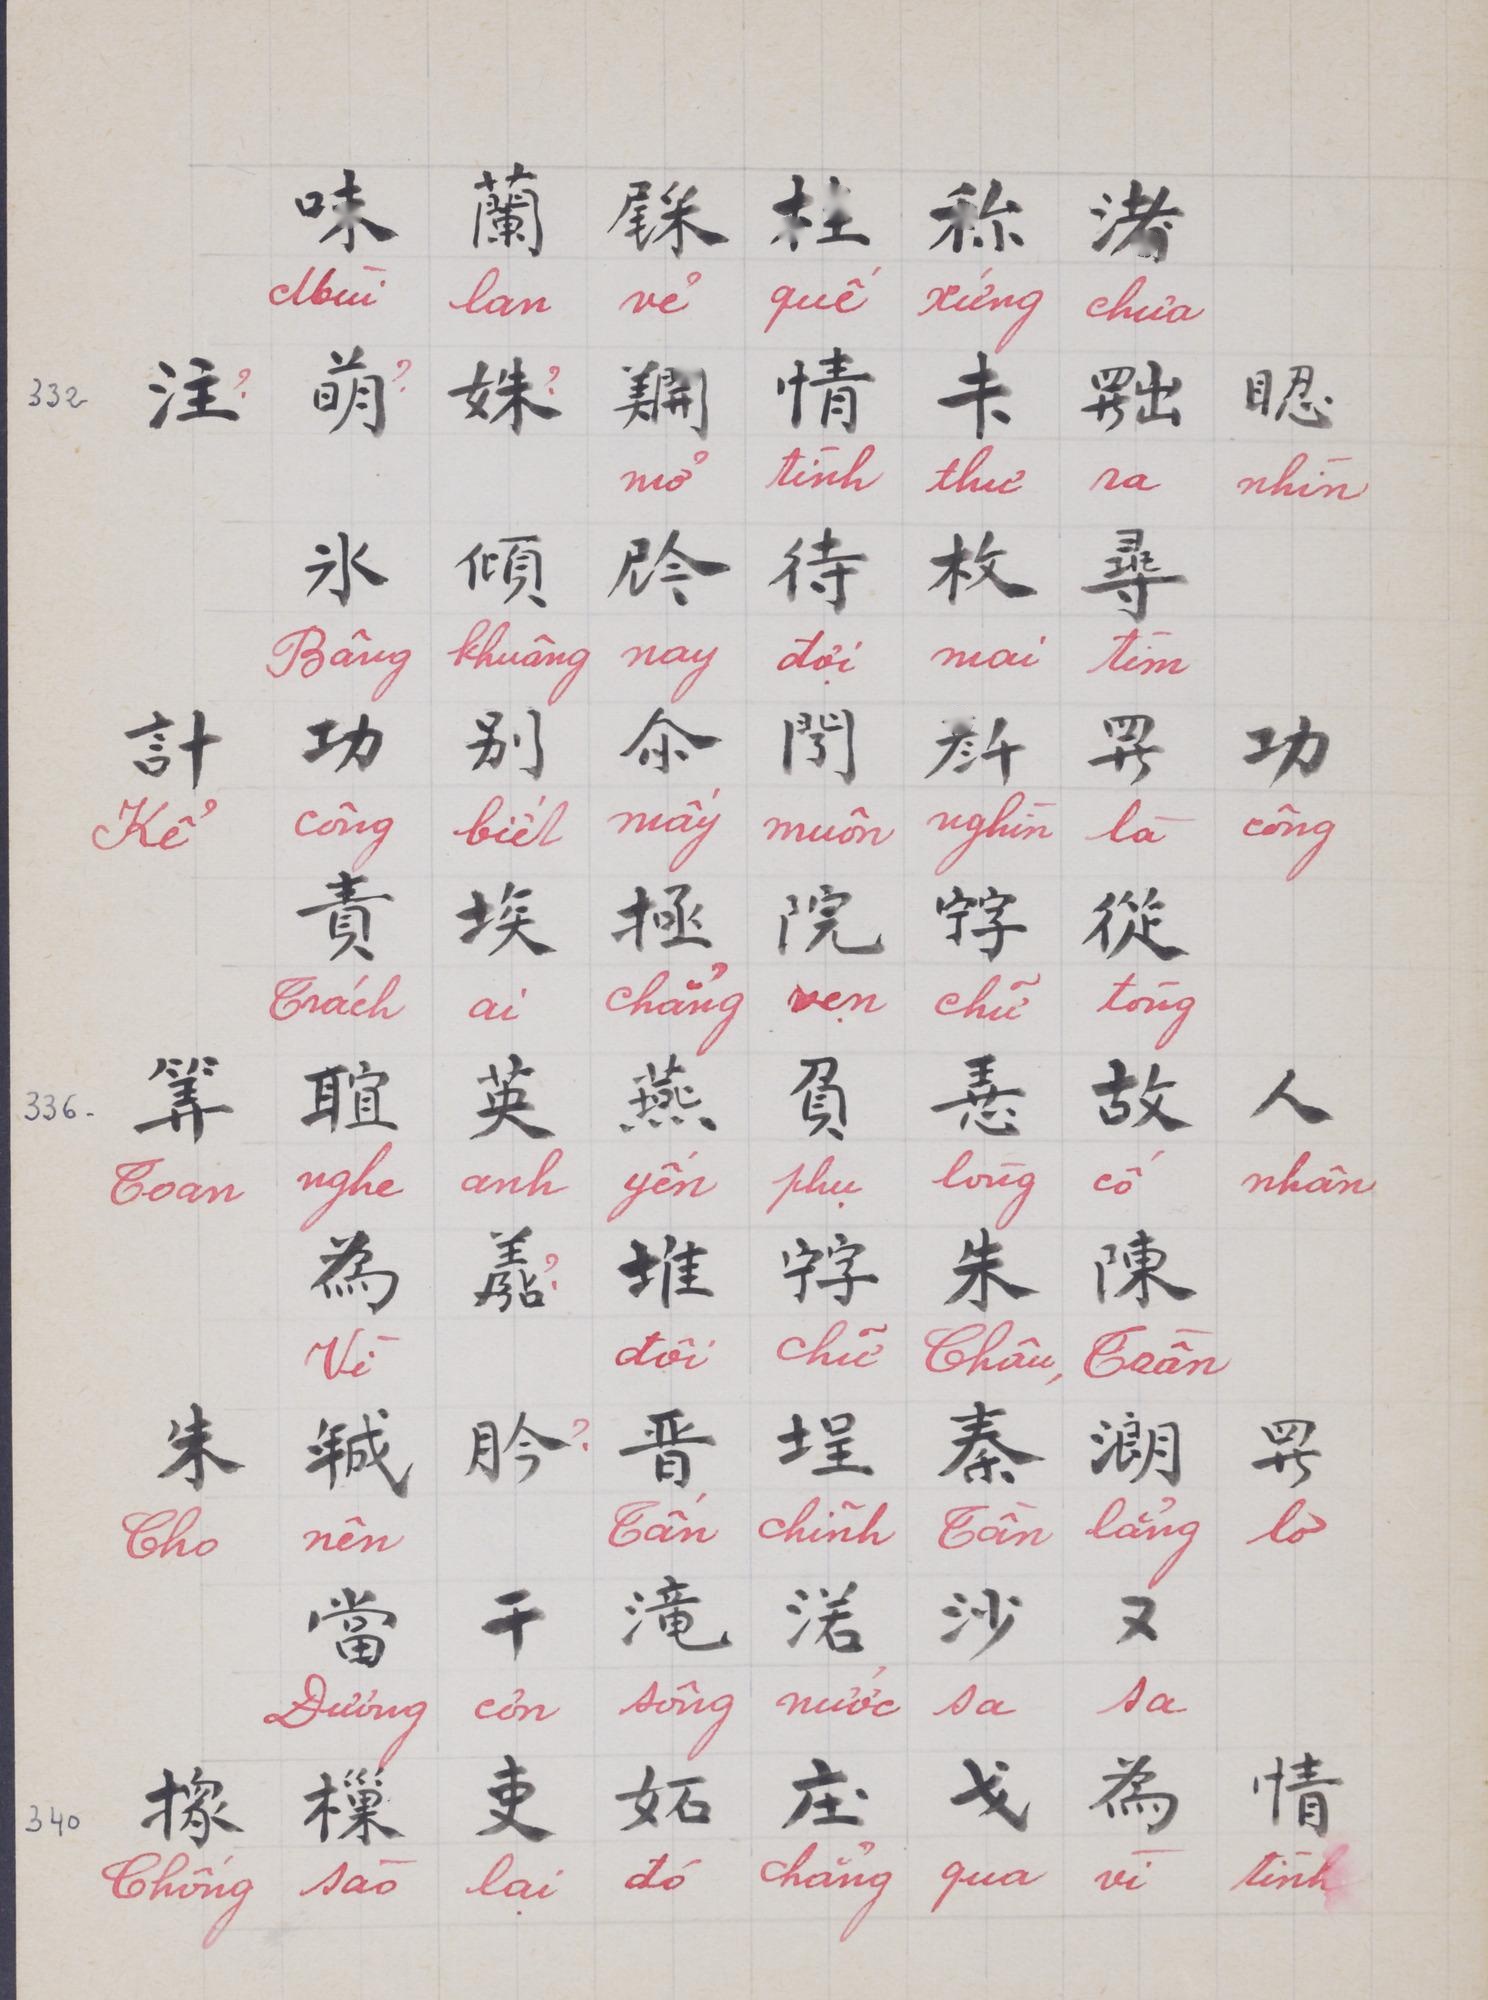 味 蘭 𫆡 桂 称 渚
Mùi lan vẻ quế xứng chưa
332 注? 萌? 姝? 𫔭 情 未 𦋦 𥆾
mở tình thư ra nhìn
氷 傾 待 枚 尋
Bâng khuâng nay đợi mai tìm
計 功 别 尒 𨷈 𠦳 𱺵 功
Kể công biết mấy muôn nghìn là công
責 埃 拯 院 𡨸 從
Trách ai chẳng vẹn chữ tòng
336- 筭 𦖑 英 燕 負 𢚸 故 人
Toan nghe anh yến phụ lòng cố nhân
為 ? 堆 𡨸 朱 陳
Vì đôi chữ Châu, Trần
朱 𢧚 肹? 晋 埕 秦 𱺵
Cho nên Tấn chình Tần lẳng là
當 干 滝 渃 沙 又
Đương cơn sông nước sa sa
340 樔 吏 妬 庄 戈 為 情
Chống sào lại đó chẳng qua vì tình